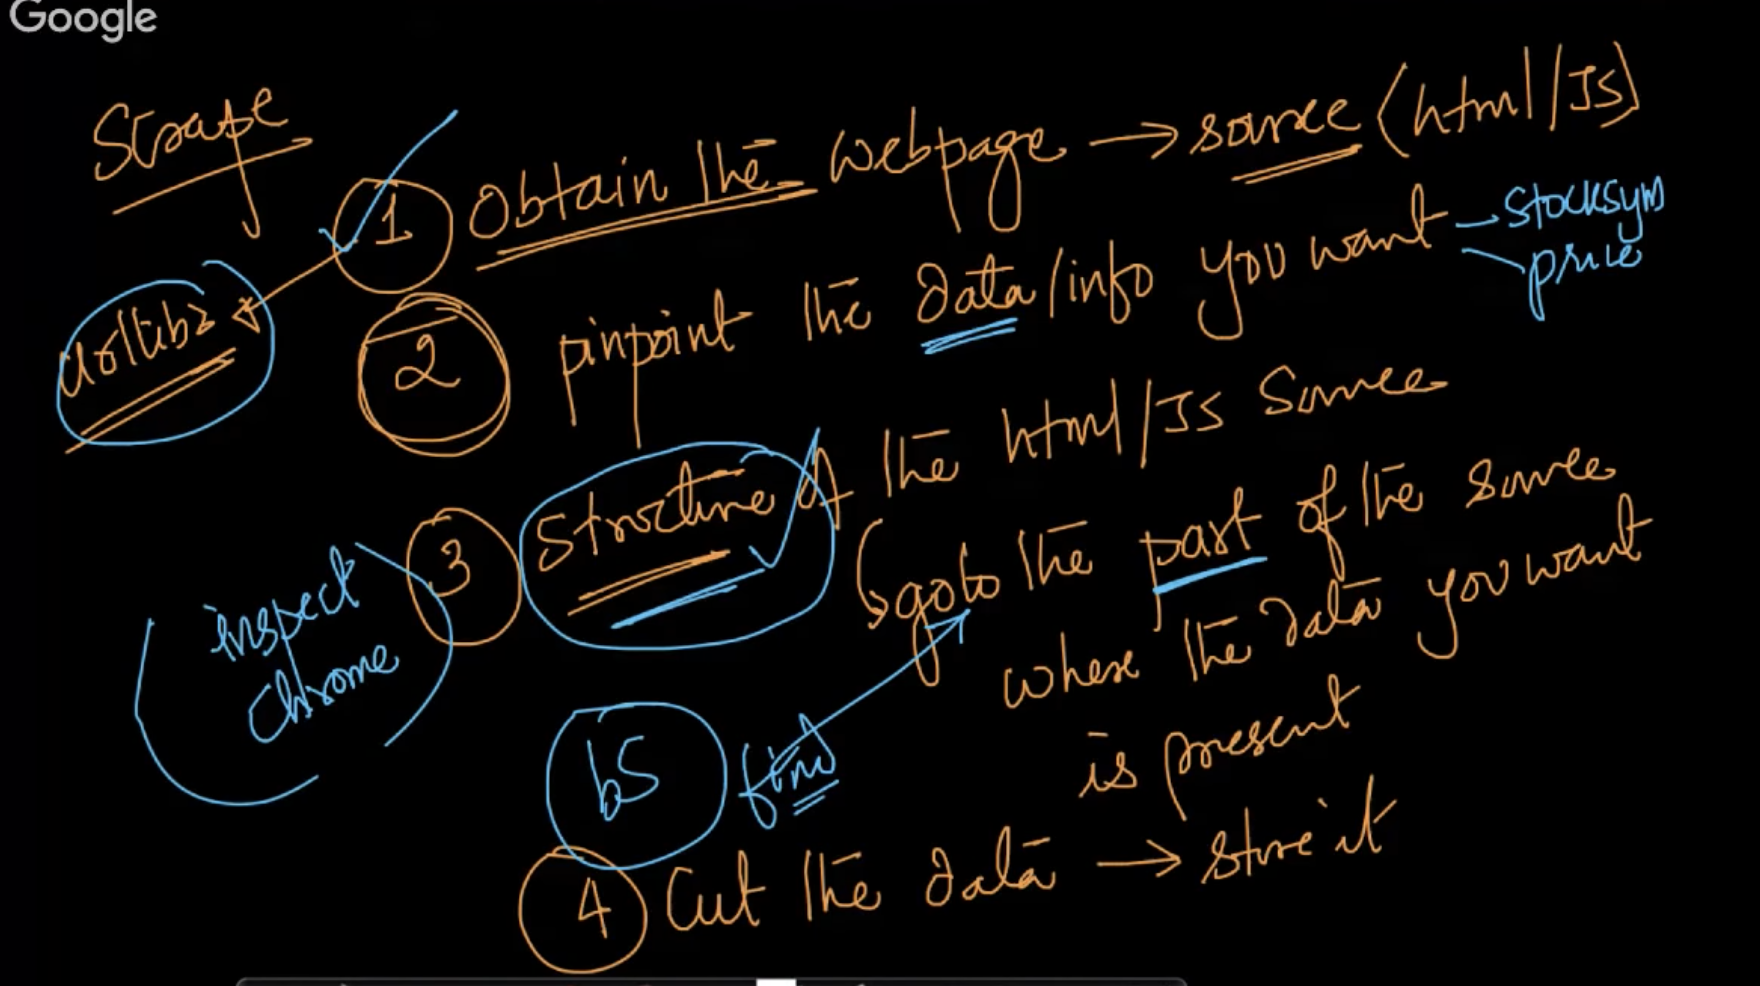 Google
Scrape
1 Obtain the webpage → source (html/JS)
urllib2
2 pinpoint the data/info you want
stocksym
price
3 structure of the html/JS source
goto the part of the source
where the data you want
is present
inspect
chrome
bs find
4 Cut the data → store it